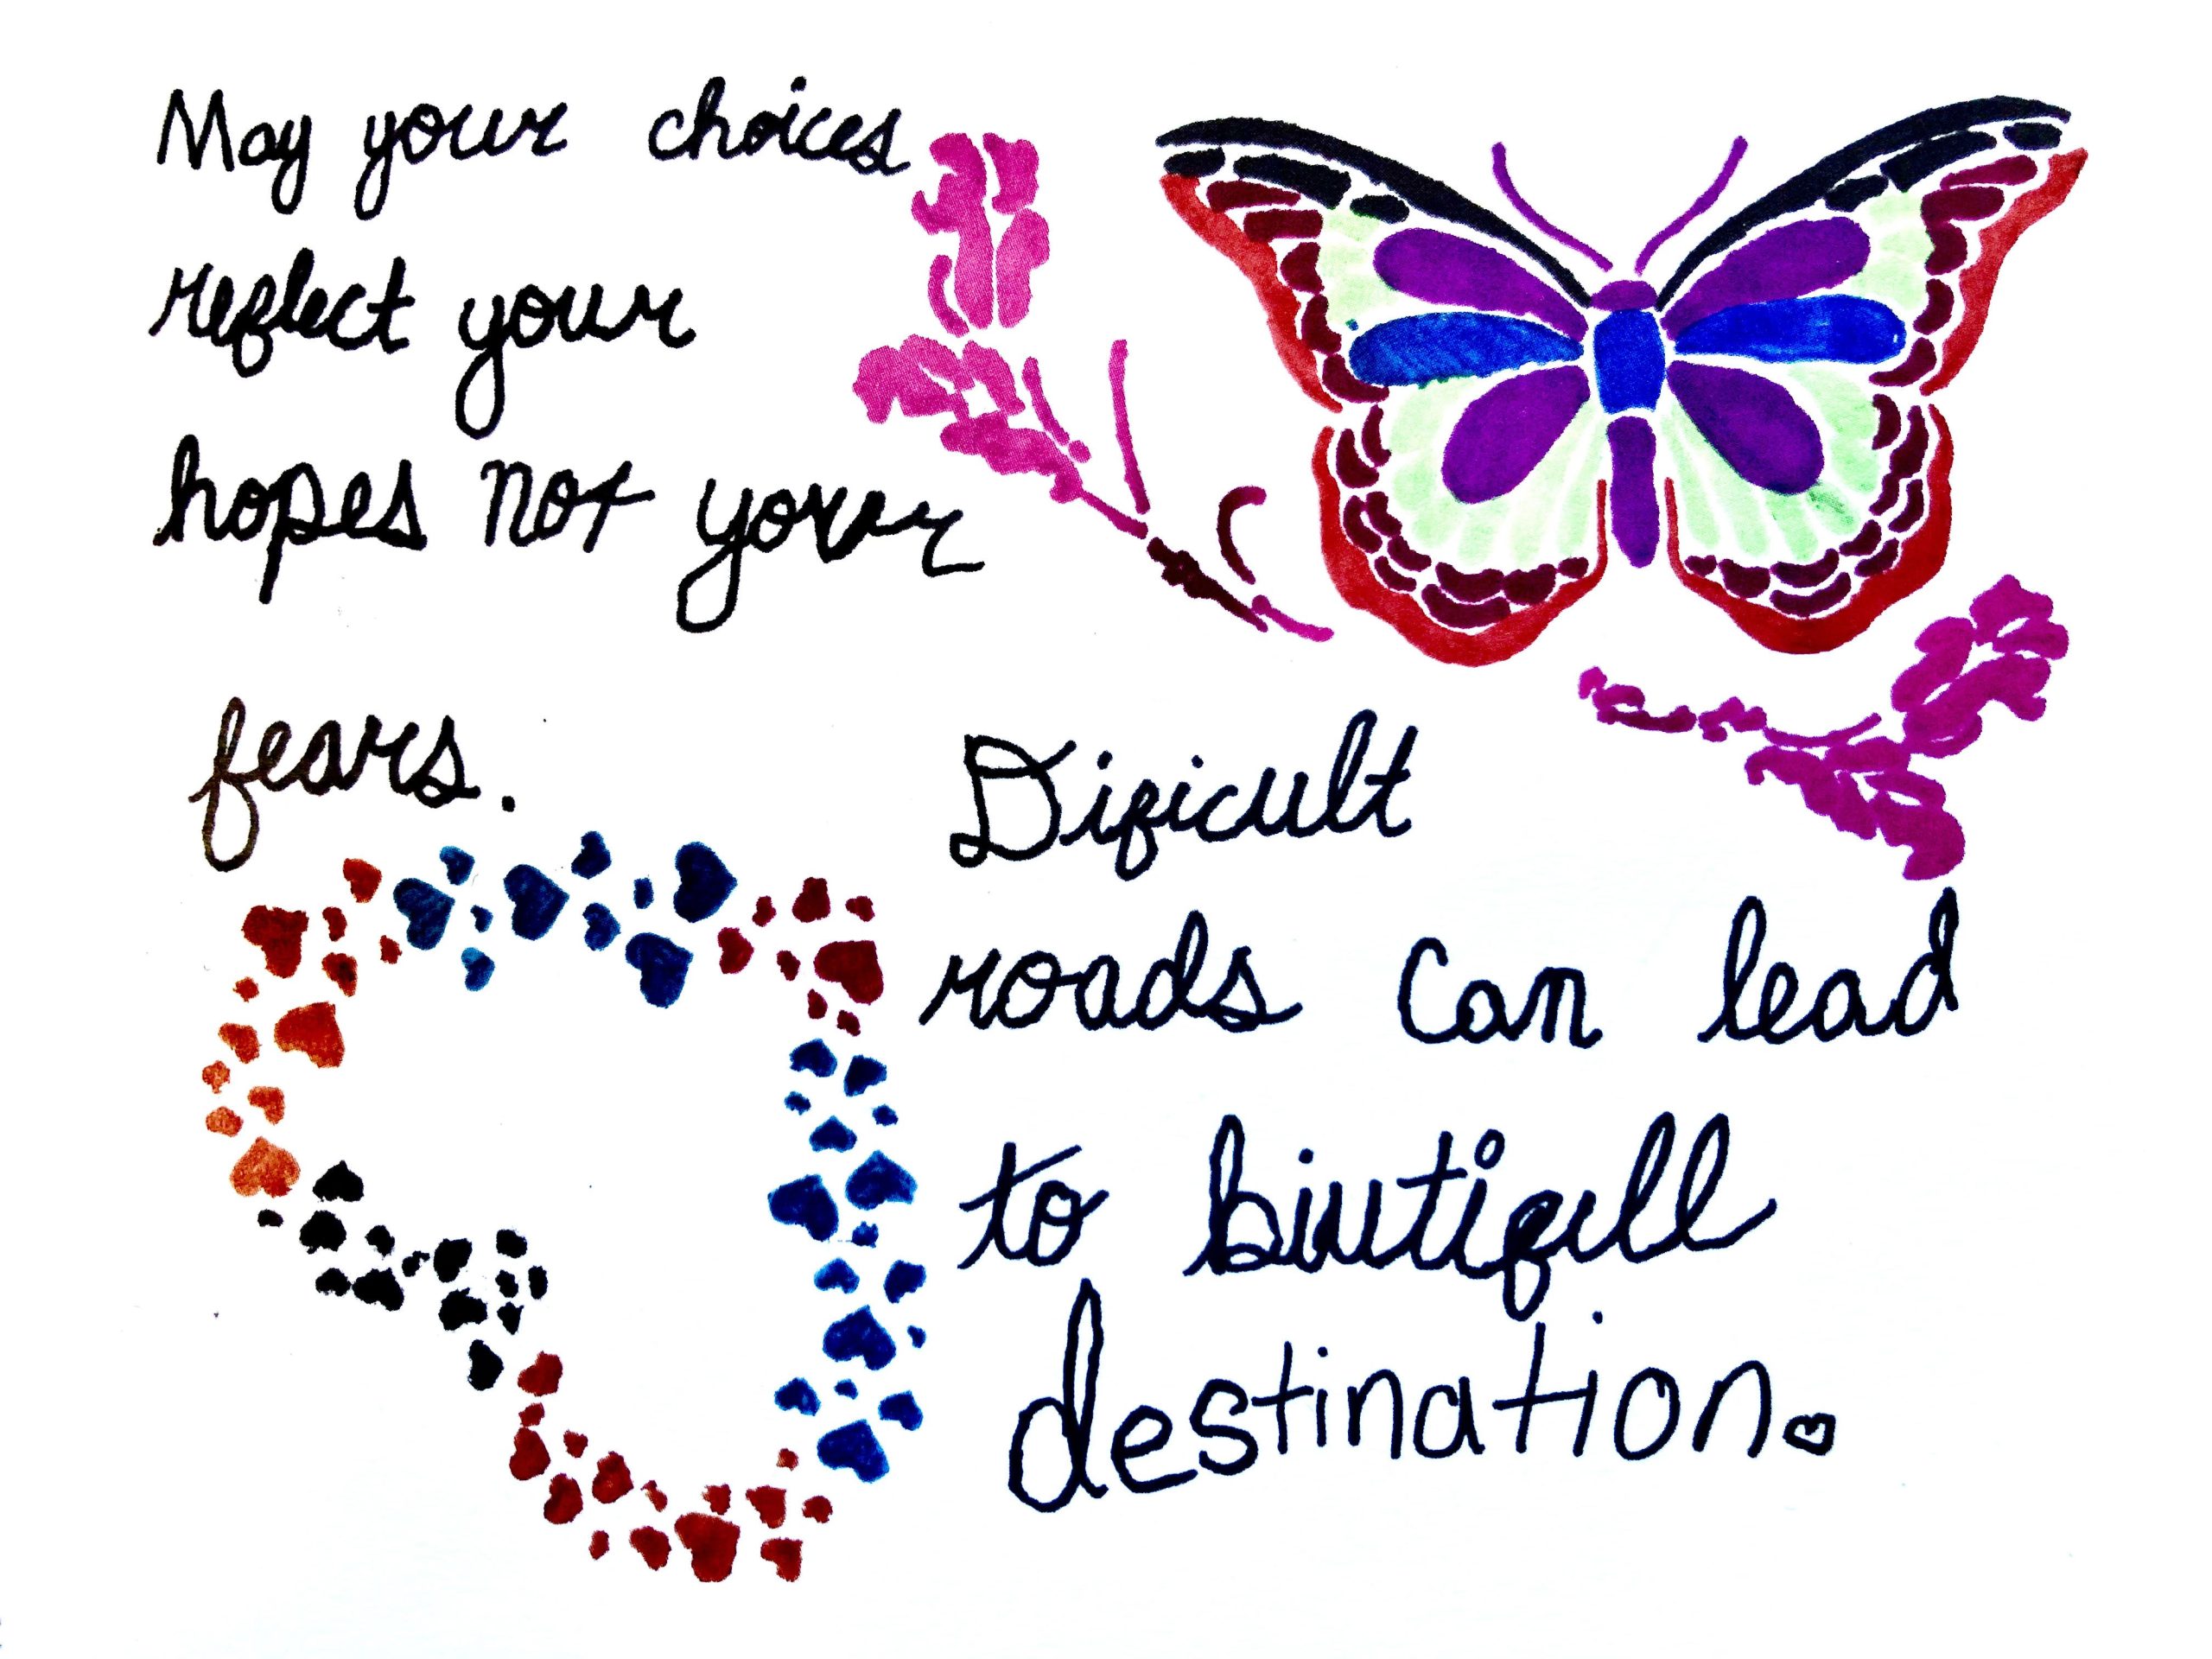 May your choices
reflect your
hopes not your
fears.
Dificult
roads can lead
to biutifull
destination.